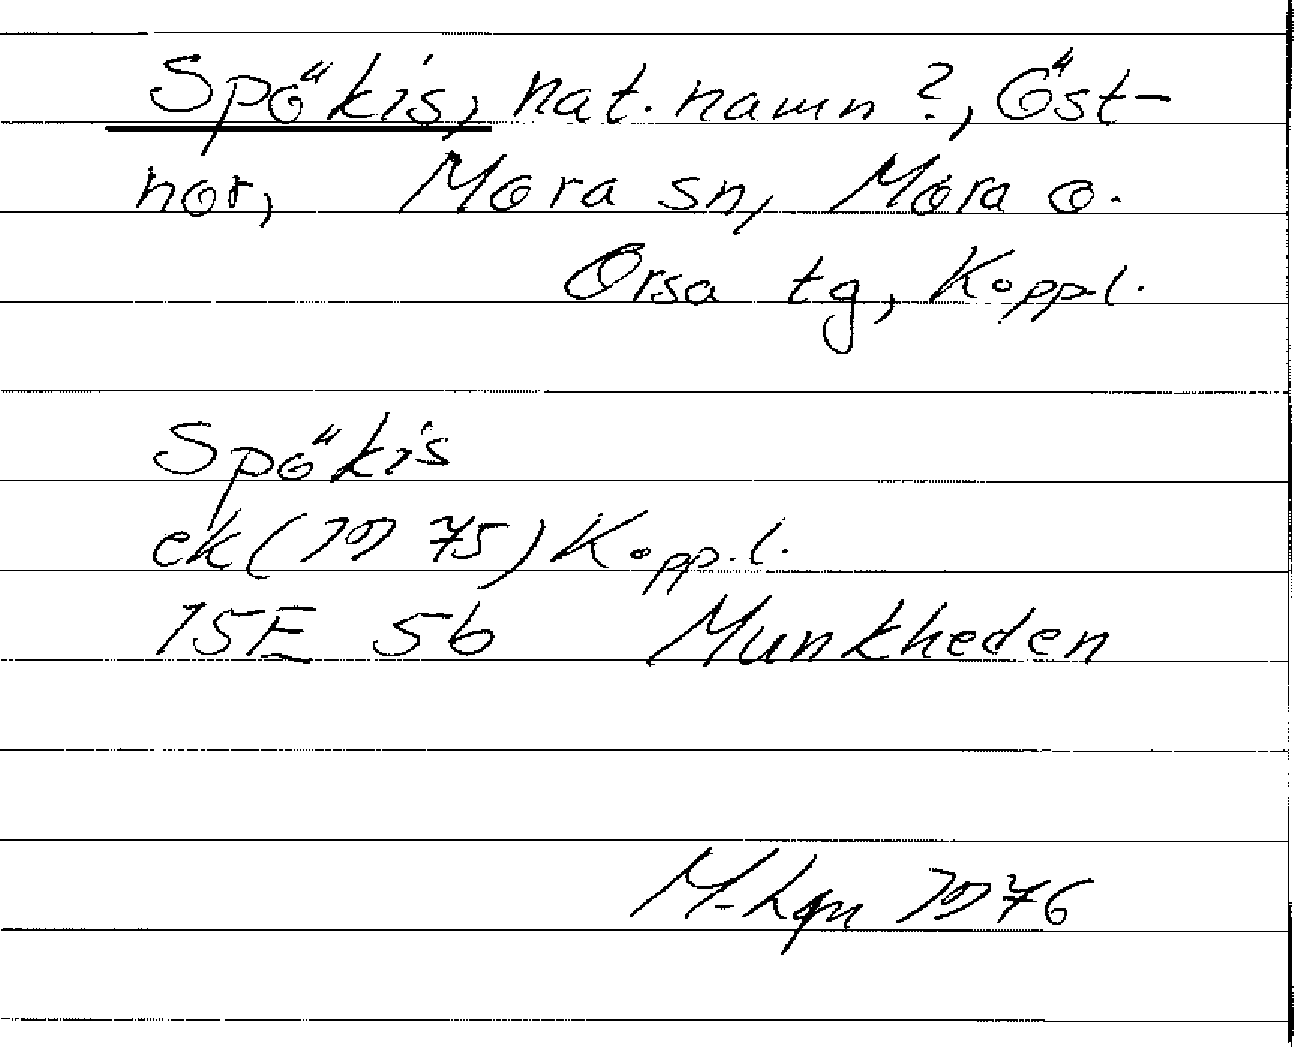 Spökis, nat. namn?, Öst-
nor, Mora sn, Mora o.
Orsa tg, Koppl.
Spökis
ek (1975) Kopp.l.
15E 5b Munkheden
1976